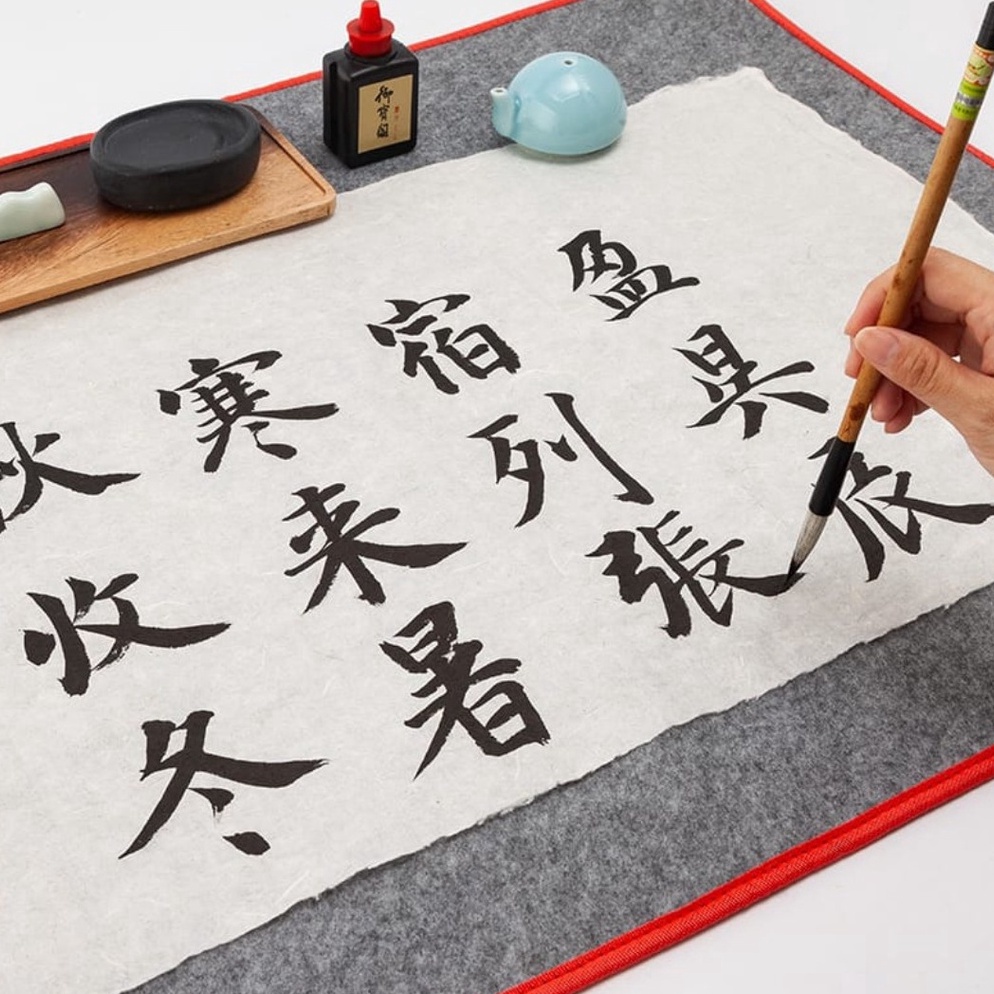 盈昃辰
宿列張
寒来暑
秋收冬